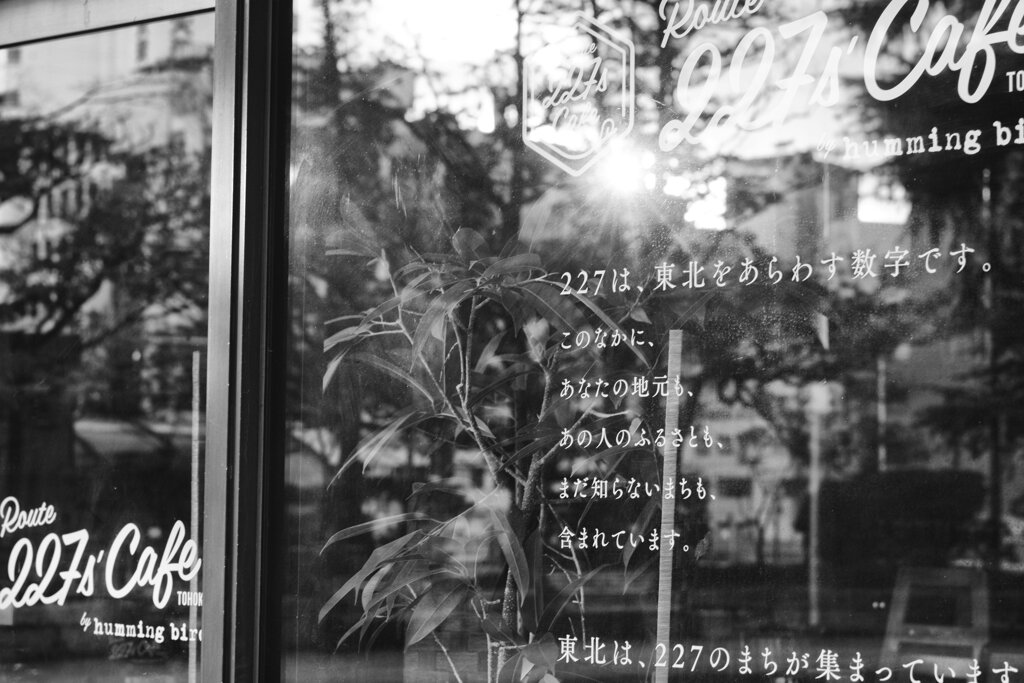 Route
227s' Cafe
Route
227s' Cafe
TO
by humming bi
227は、東北をあらわす数字です。
このなかに、
あなたの地元も、
あの人のふるさとも、
まだ知らないまちも、
含まれています。
東北は、227のまちが集まっています
Route
227s' Cafe
TOHOK
by humming bird